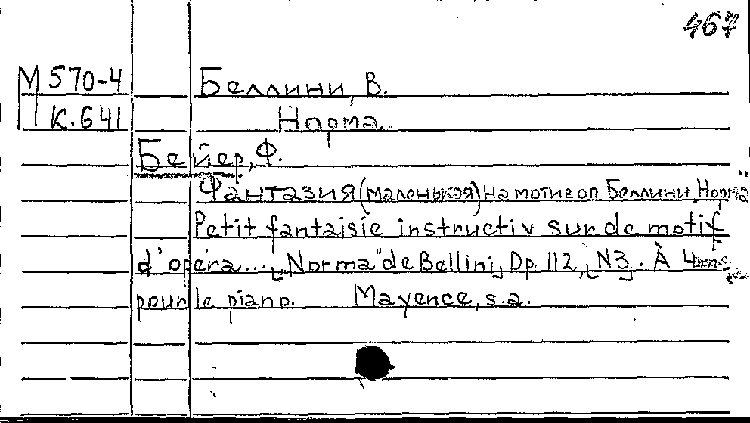 467
М 570-4 Беллини, В.
К.641 Норма.
Бейер, Ф.
Фантазия (маленькая) на мотив оп. Беллини „Норма"
Petit fantaisie instructiv sur de motif
d'opéra... „Norma" de Bellini, Op. 112, N3. À 4 mns
pour le piano. Mayence, s.a.